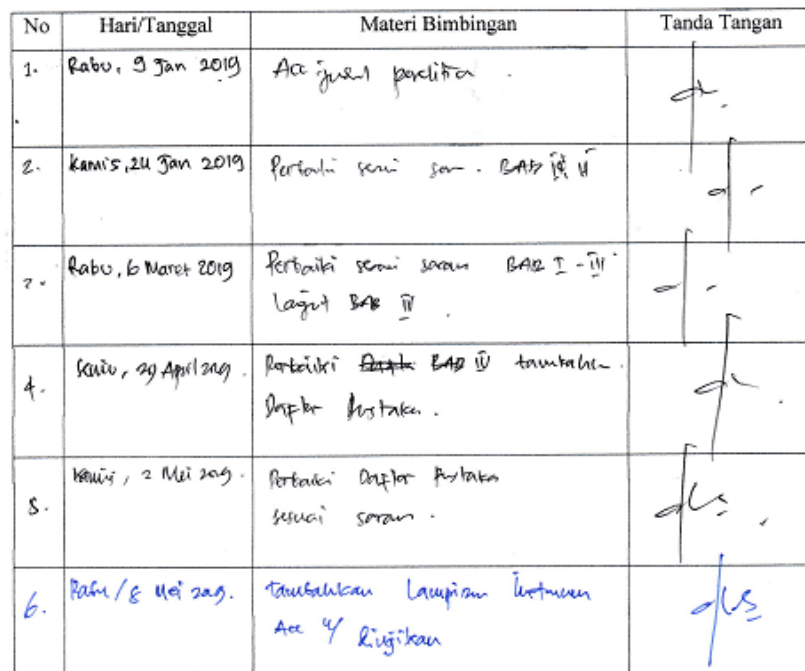 No Hari/Tanggal Materi Bimbingan Tanda Tangan
1. Rabu, 9 Jan 2019 Acc judul penelitian.
2. Kamis, 24 Jan 2019 Perbaiki sesuai saran. BAB II
3. Rabu, 6 Maret 2019 Perbaiki sesuai saran BAB I - III
Lanjut BAB IV.
4. Senin, 29 April 2019. Perbaiki BAB IV tambahkan.
Daftar Pustaka.
5. Kamis, 2 Mei 2019. Perbaiki Daftar Pustaka
sesuai saran.
6. Rabu / 8 Mei 2019. tambahkan Lampiran
Acc u/ Diujikan